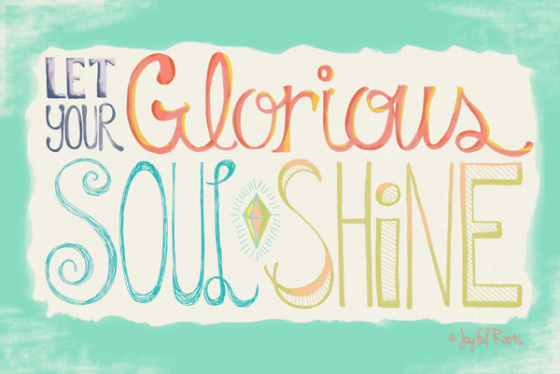 LET YOUR Glorious
SOUL SHiNE
© Joyful Roots